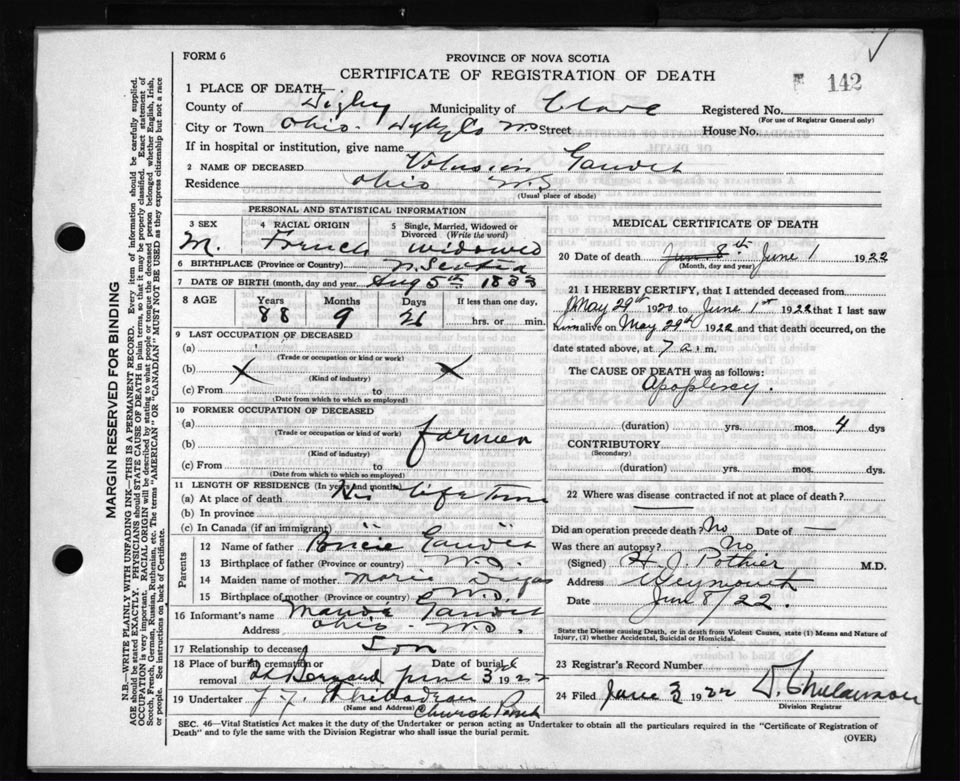 FORM 6
PROVINCE OF NOVA SCOTIA
CERTIFICATE OF REGISTRATION OF DEATH
142
1 PLACE OF DEATH—
County of Digby Municipality of Clare Registered No.
(For use of Registrar General only)
City or Town Ohio. Digby Co N.S Street House No.
If in hospital or institution, give name
2 NAME OF DECEASED Volusien Gaudet
Residence Ohio N.S
(Usual place of abode)
PERSONAL AND STATISTICAL INFORMATION
3 SEX M.
4 RACIAL ORIGIN French
5 Single, Married, Widowed or Divorced (Write the word) widowed
6 BIRTHPLACE (Province or Country) N. Scotia
7 DATE OF BIRTH (month, day and year) Aug 5th 1833
8 AGE Years Months Days If less than one day,
88 9 26 hrs. or min.
9 LAST OCCUPATION OF DECEASED
(a)
(Trade or occupation or kind or work)
(b) X X
(Kind of industry)
(c) From to
(Date from which to which so employed)
10 FORMER OCCUPATION OF DECEASED
(a) farmer
(Trade or occupation or kind of work)
(b)
(Kind of industry)
(c) From to
(Date from which to which so employed)
11 LENGTH OF RESIDENCE (In years and months)
(a) At place of death His life Time
(b) In province
(c) In Canada (if an immigrant)
Parents
12 Name of father Gaudet
13 Birthplace of father (Province or country) N.S.
14 Maiden name of mother Marie Dugas
15 Birthplace of mother (Province or country) N.S.
16 Informant's name Mande Gaudet
Address Ohio N.S.
17 Relationship to deceased Son
18 Place of burial, cremation or removal St Bernard Date of burial June 3 1922
19 Undertaker J. F. Thibodeau
(Name and Address) Church Point
MEDICAL CERTIFICATE OF DEATH
20 Date of death June 8th June 1 1922
(Month, day and year)
21 I HEREBY CERTIFY, that I attended deceased from
May 29th 1922 to June 1st 1922 that I last saw
him alive on May 29th 1922 and that death occurred, on the
date stated above, at 7 a. m.
The CAUSE OF DEATH was as follows:
Apoplexy.
(duration) yrs. mos. 4 dys
CONTRIBUTORY
(Secondary)
(duration) yrs. mos. dys.
22 Where was disease contracted if not at place of death?
Did an operation precede death? No Date of —
Was there an autopsy? No
(Signed) H. J. Pothier M.D.
Address Weymouth
Date Jun 8/22.
State the Disease causing Death, or in death from Violent Causes, state (1) Means and Nature of
Injury, (2) whether Accidental, Suicidal or Homicidal.
23 Registrar's Record Number
24 Filed June 3 1922
Division Registrar
SEC. 46—Vital Statistics Act makes it the duty of the Undertaker or person acting as Undertaker to obtain all the particulars required in the "Certificate of Registration of
Death" and to fyle the same with the Division Registrar who shall issue the burial permit.
(OVER)
MARGIN RESERVED FOR BINDING
N.B.—WRITE PLAINLY WITH UNFADING INK—THIS IS A PERMANENT RECORD. Every item of information should be carefully supplied.
AGE should be stated EXACTLY. PHYSICIANS should STATE CAUSE OF DEATH in plain terms, so that it may be properly classified. Exact statement of
OCCUPATION is very important. RACIAL ORIGIN will be described by stating to what people or tongue the deceased person belonged whether English, Irish,
Scotch, French, German, Russian, Ruthenian, etc. The terms "AMERICAN" OR "CANADIAN" MUST NOT BE USED as they express citizenship but not a race
or people. See instructions on back of Certificate.